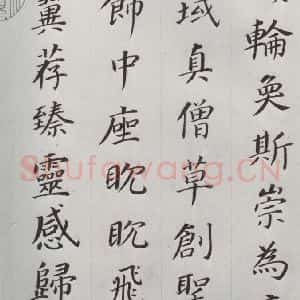 輪奐斯崇為
域真僧草創聖
飾中座眈眈飛
翼荐臻靈感歸
Shufawang.CN